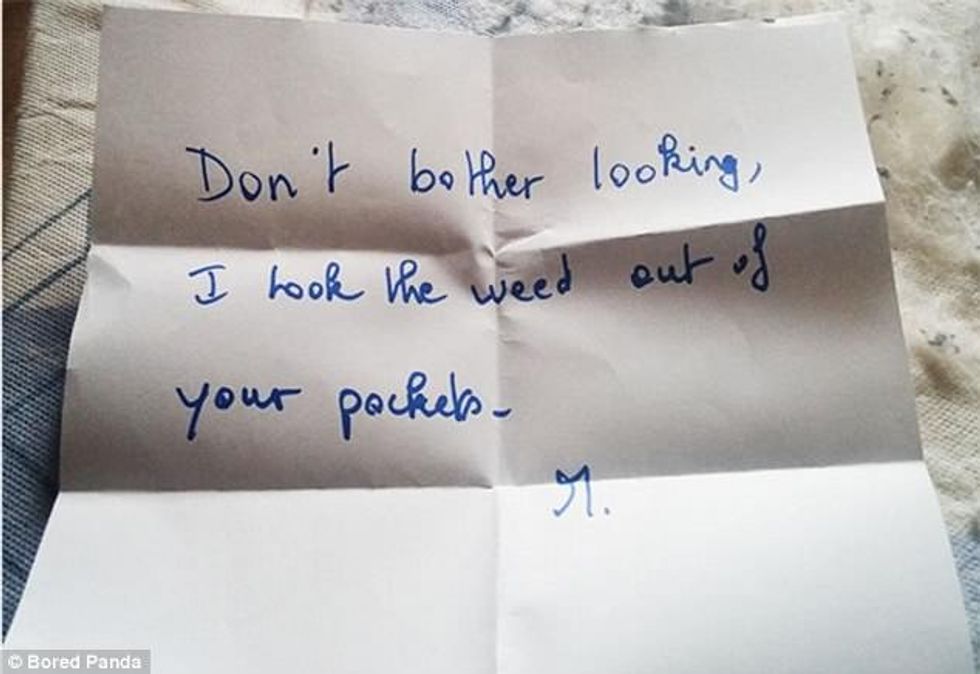 Don't bother looking,
I took the weed out of
your pockets-
M.
© Bored Panda